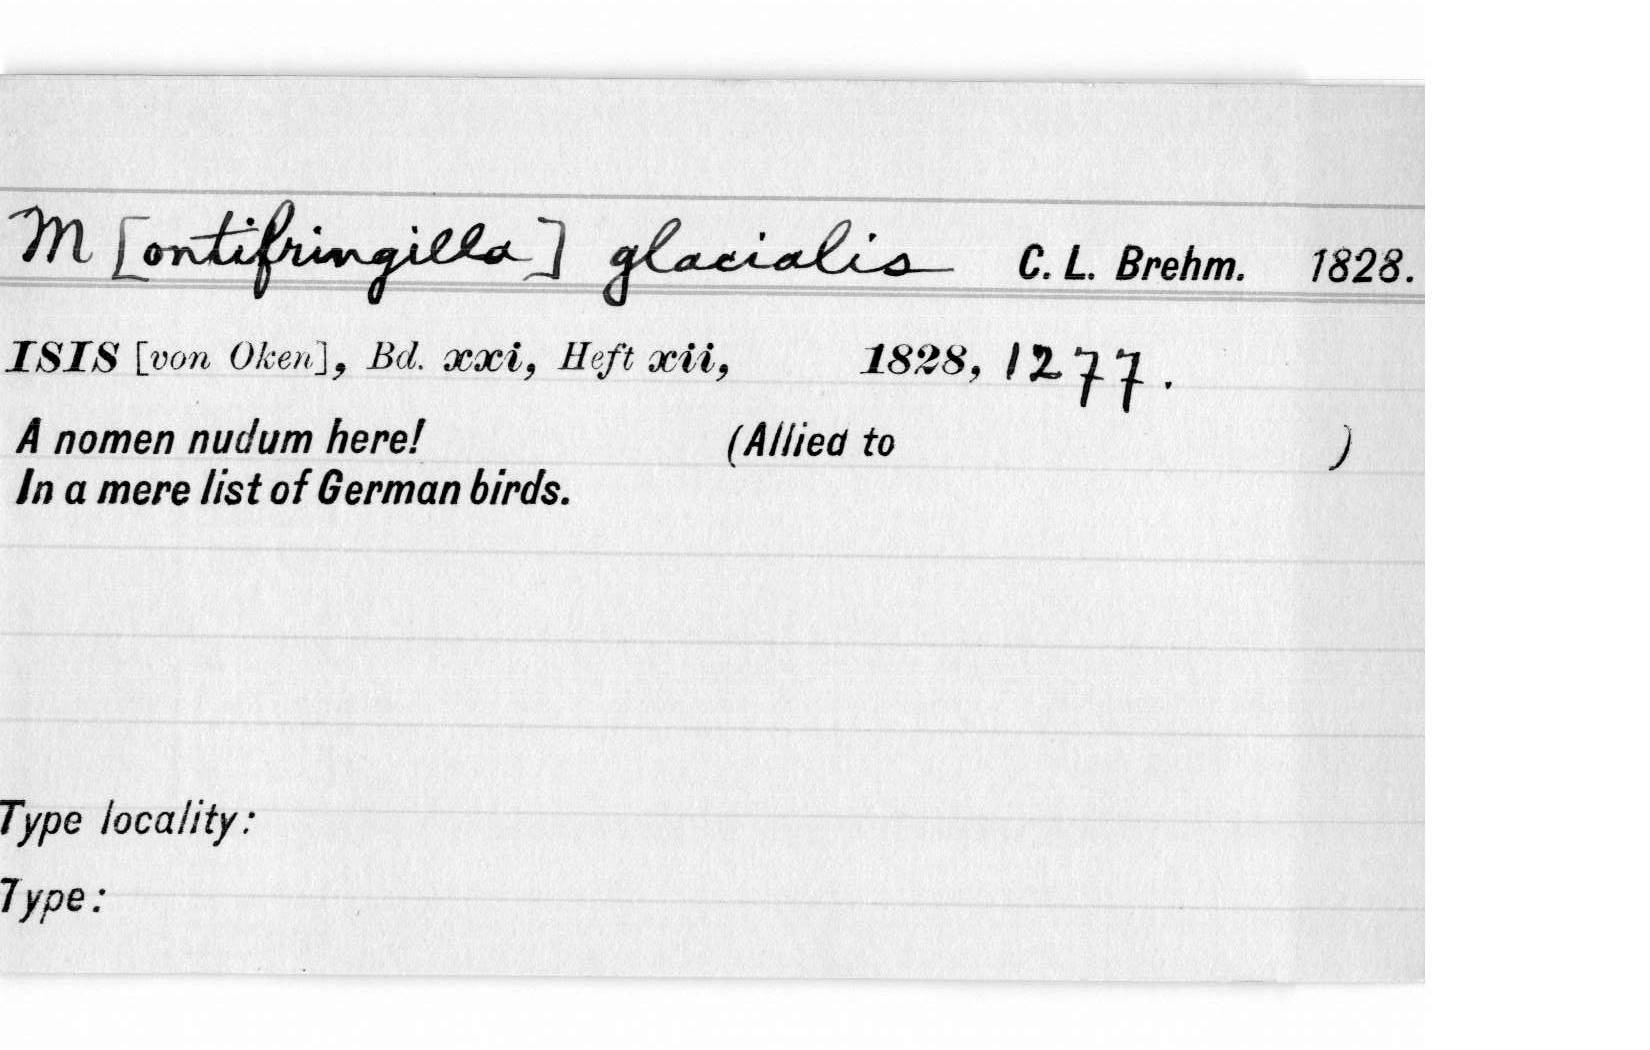 M [ontifringilla] glacialis C. L. Brehm. 1828.
ISIS [von Oken], Bd. xxi, Heft xii, 1828, 1277.
A nomen nudum here! (Allied to )
In a mere list of German birds.
Type locality:
Type: